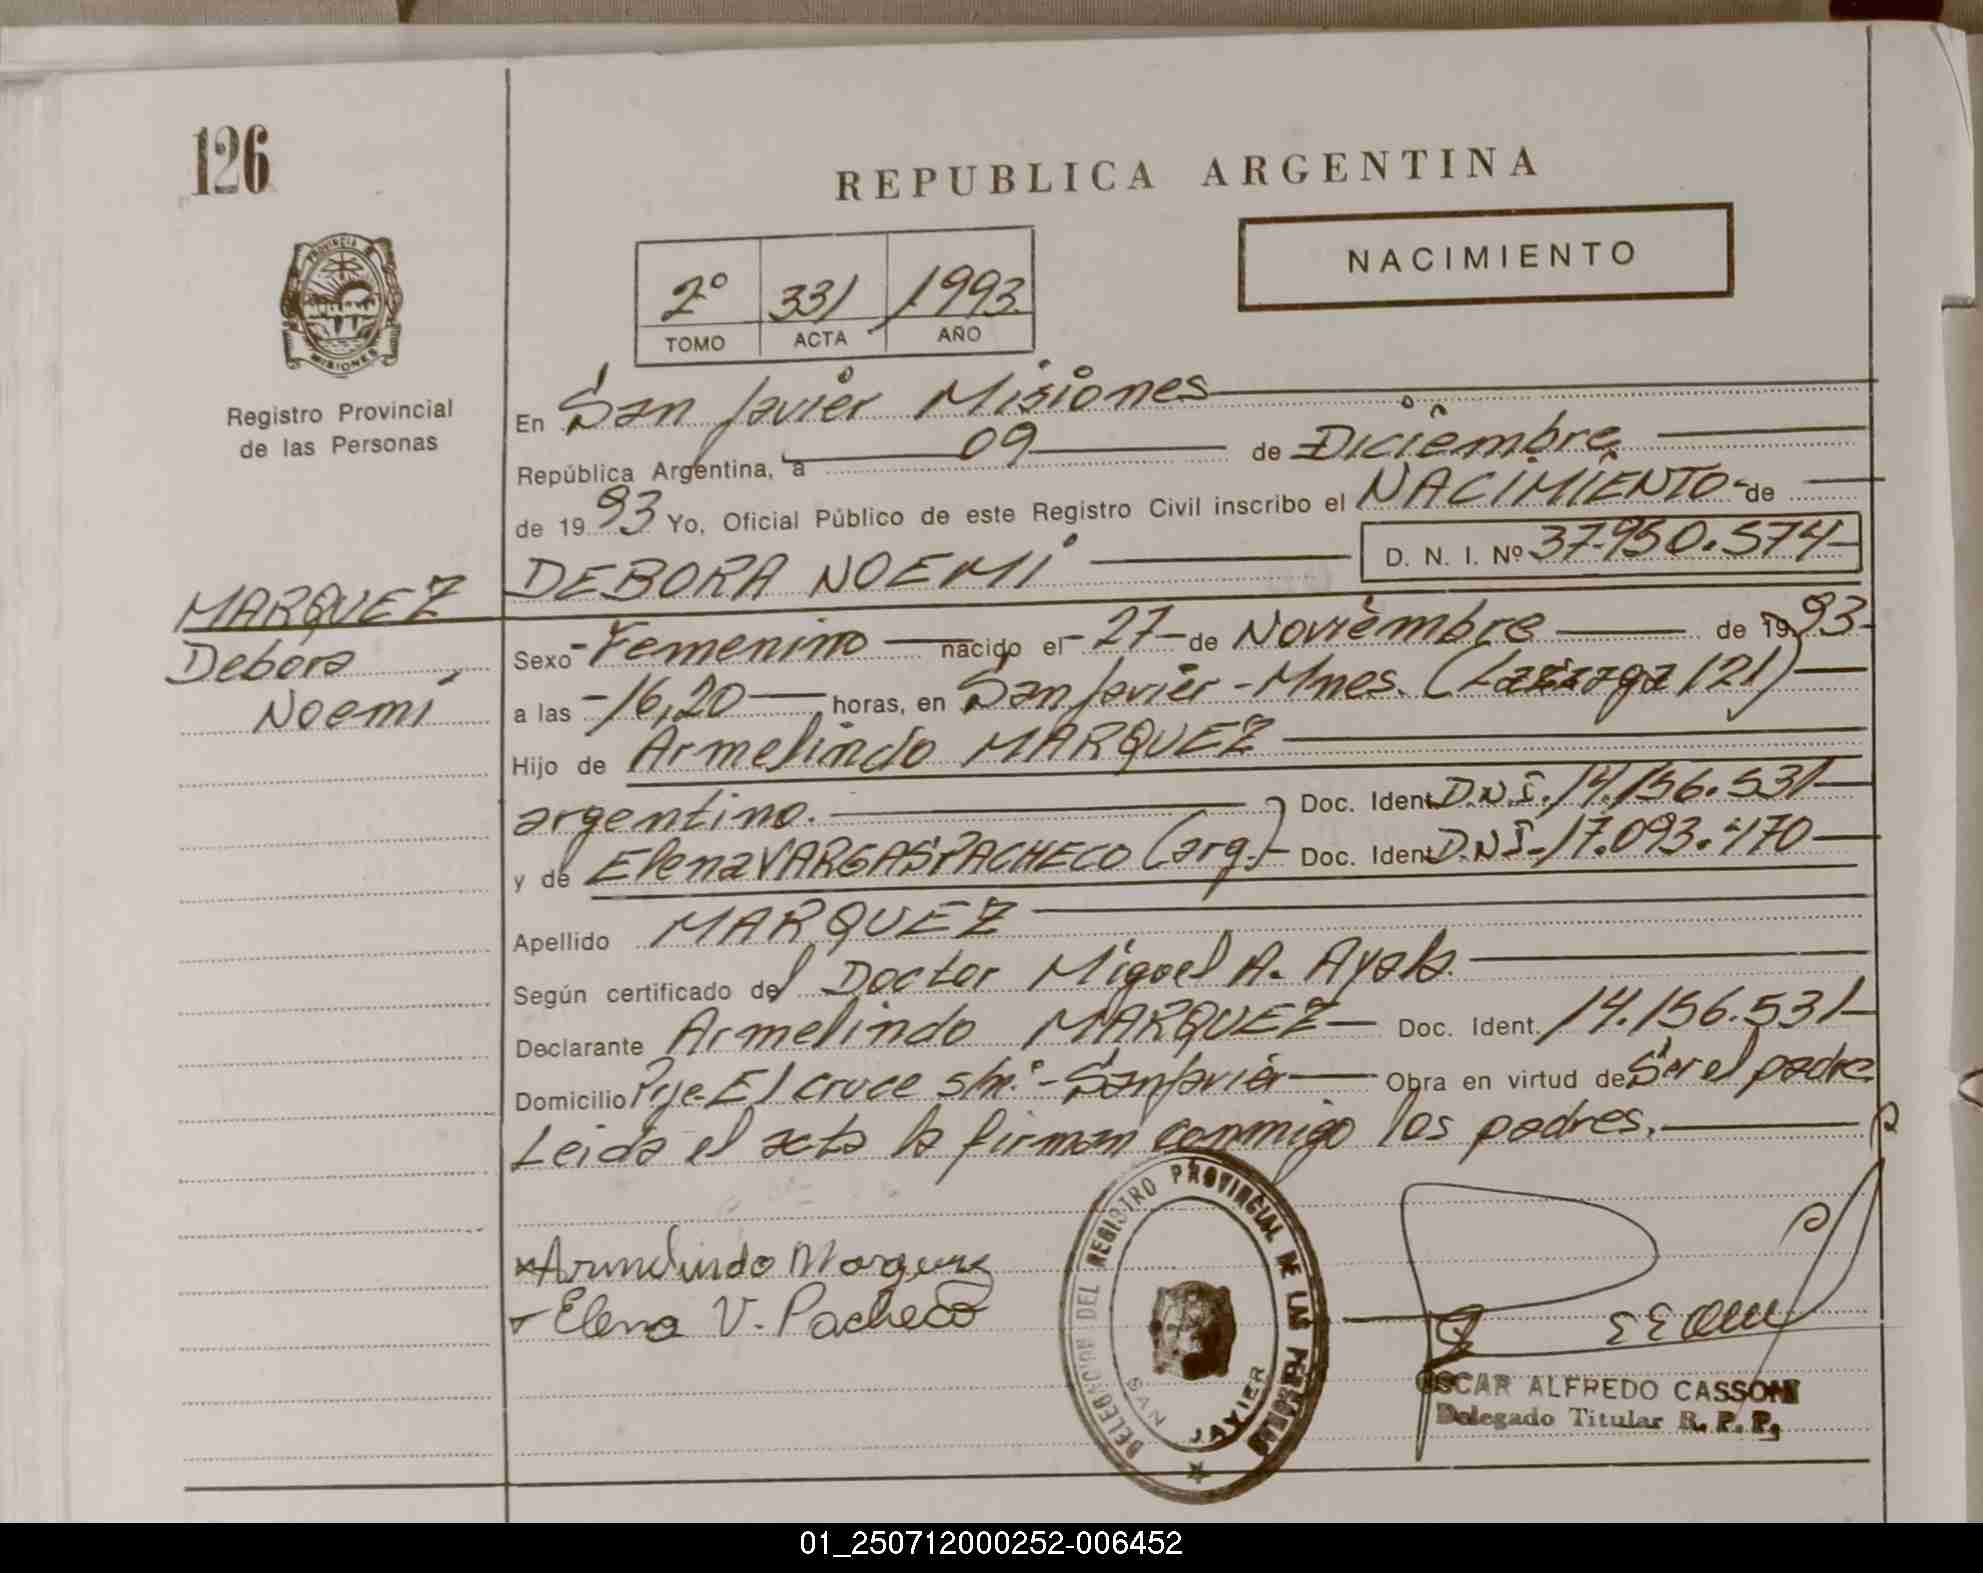 126
REPUBLICA ARGENTINA
NACIMIENTO
2º 331 1993
TOMO ACTA AÑO
PROVINCIA DE
MISIONES
Registro Provincial
de las Personas
En San Javier Misiones
República Argentina, a 09 de Diciembre
de 1993 Yo, Oficial Público de este Registro Civil inscribo el NACIMIENTO de
DEBORA NOEMI D. N. I. Nº 37.950.574
MARQUEZ
Debora
Noemi
Sexo Femenino nacido el 27 de Noviembre de 1993
a las 16,20 horas, en San Javier - Mnes. ( 121)
Hijo de Armelindo MARQUEZ
argentino. Doc. Ident D.N.I. 14.156.531
y de Elena VARGAS PACHECO (arg.) Doc. Ident D.N.I. 17.093.470
Apellido MARQUEZ
Según certificado del Doctor Miguel A. Ayala.
Declarante Armelindo MARQUEZ Doc. Ident. 14.156.531
Domicilio Pje. El cruce s/nº - San Javier Obra en virtud de Ser el padre
Leida el acta la firman conmigo los padres.
Armelindo Marquez
Elena V. Pacheco
DELEGACION DEL REGISTRO PROVINCIAL DE LAS PERSONAS
SAN JAVIER
OSCAR ALFREDO CASSONI
Delegado Titular R. P. P.
01_250712000252-006452